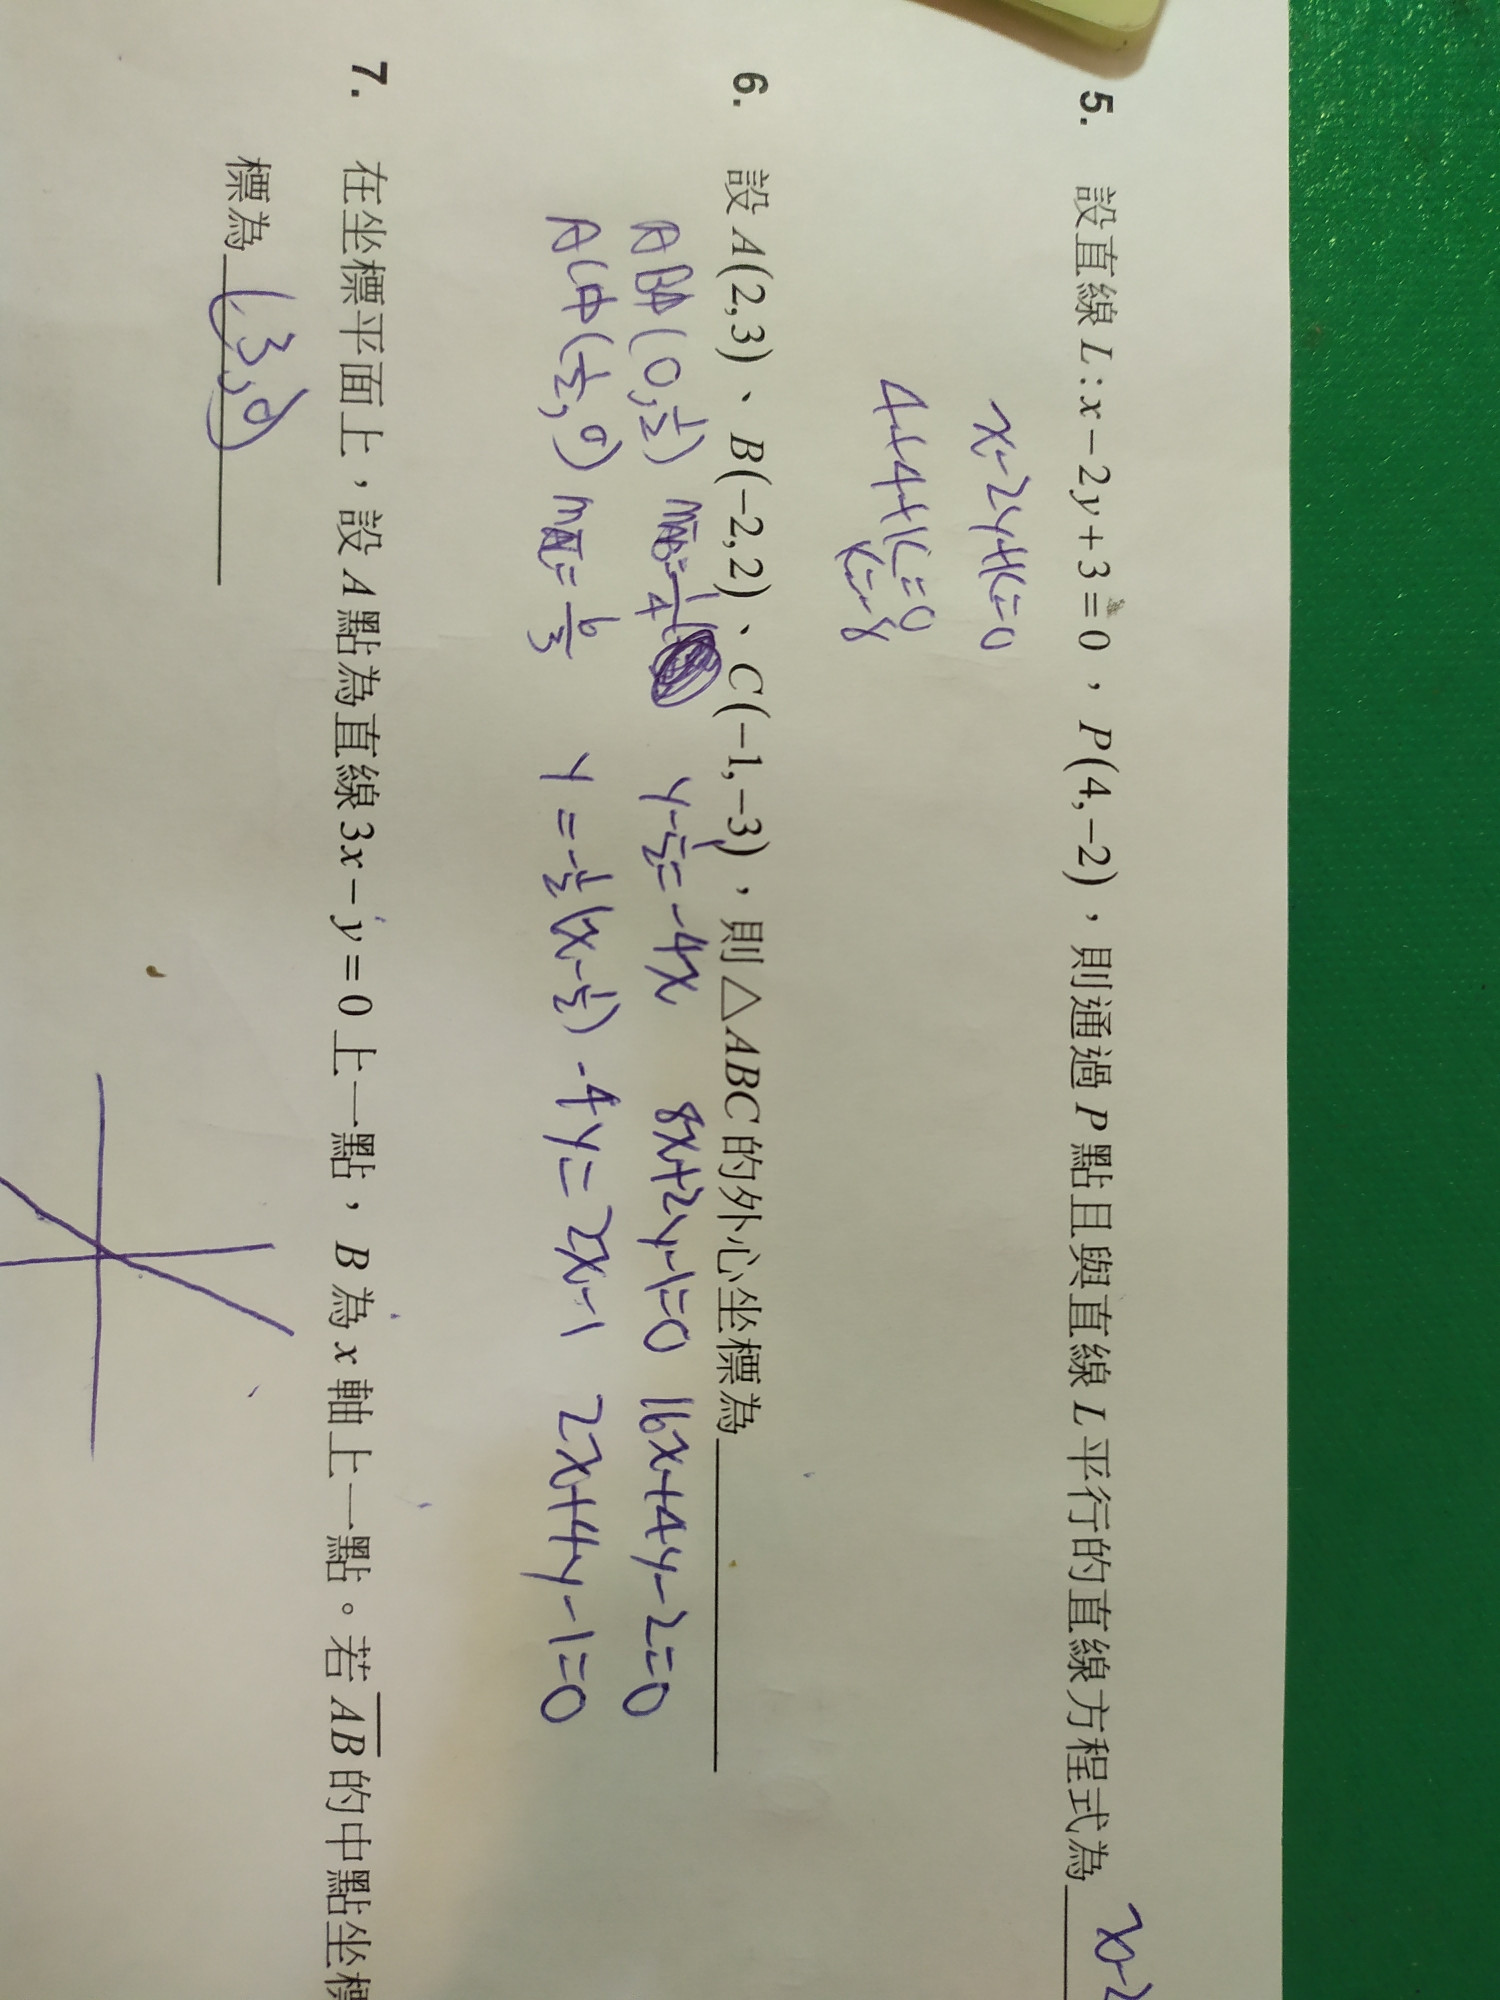 5. 設直線 L:x−2y+3=0，P(4,−2)，則通過 P 點且與直線 L 平行的直線方程式為 x-2
x-2y+k=0
4+4+k=0
k=-8
6. 設 A(2,3)、B(−2,2)、C(−1,−3)，則△ABC 的外心坐標為
AB中(0,1/2) mAB=1/4 y-1/2=-4x 8x+2y-1=0 16x+4y-2=0
AC中(1/2,0) mAC=6/3 y=-1/2(x-1/2) -4y=2x-1 2x+4y-1=0
7. 在坐標平面上，設 A 點為直線 3x−y=0 上一點，B 為 x 軸上一點。若 AB 的中點坐標
標為 (3,0)